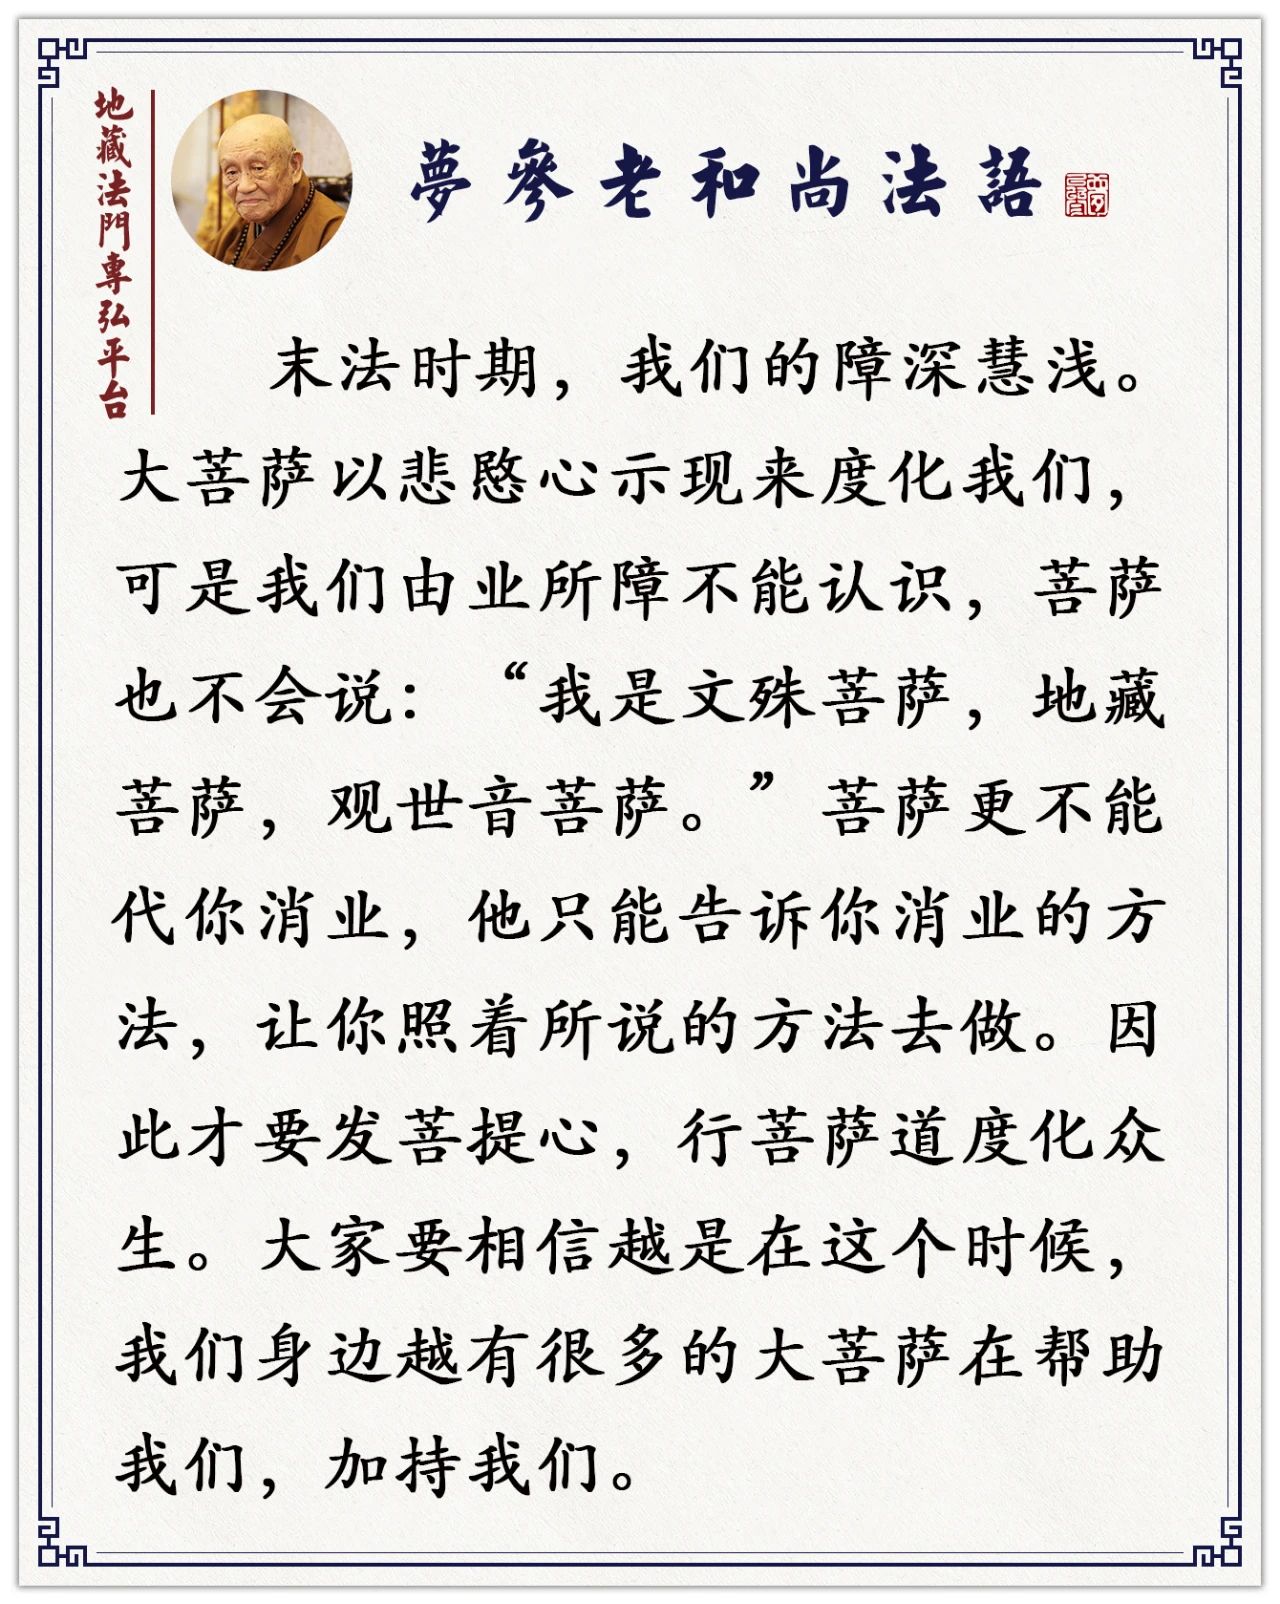 地藏法門專弘平台
夢參老和尚法語
末法时期，我们的障深慧浅。
大菩萨以悲愍心示现来度化我们，
可是我们由业所障不能认识，菩萨
也不会说：“我是文殊菩萨，地藏
菩萨，观世音菩萨。”菩萨更不能
代你消业，他只能告诉你消业的方
法，让你照着所说的方法去做。因
此才要发菩提心，行菩萨道度化众
生。大家要相信越是在这个时候，
我们身边越有很多的大菩萨在帮助
我们，加持我们。